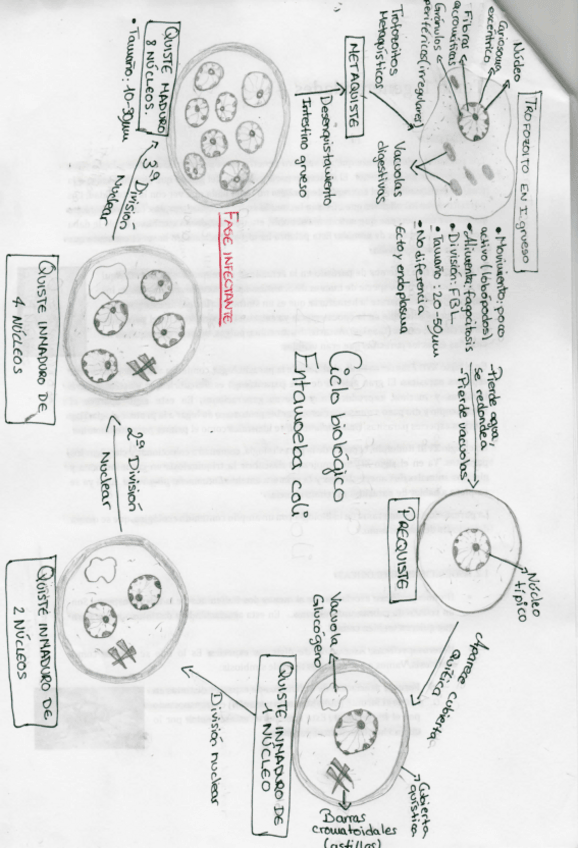 Ciclo biológico
Entamoeba coli
TROFOZOITO EN I. grueso
Núcleo
Cariosoma
excéntrico
Fibras
acromáticas
Gránulos
periféricos (irregulares)
Vacuolas
digestivas
• Movimiento: poco
activo (lobópodos)
• Alimenta: fagocitosis
• División: FBL
• Tamaño: 20-50μm
• No diferencia
Ecto y endoplasma
-Pierde agua,
se redondea
-Pierde vacuolas
PREQUISTE
Núcleo
típico
Aparece cubierta
quítica
QUISTE INMADURO DE
1 NÚCLEO
Vacuola
Glucógeno
Cubierta
quística
Barras
cromatoidales
(astillas)
División nuclear
QUISTE INMADURO DE
2 NÚCLEOS
2ª División
Nuclear
QUISTE INMADURO DE
4 NÚCLEOS
3ª División
Nuclear
QUISTE MADURO
8 NÚCLEOS.
• Tamaño: 10-30μm
FASE INFECTANTE
Desenquistamiento
Intestino grueso
METAQUISTE
Trofozoitos
Metaquísticos